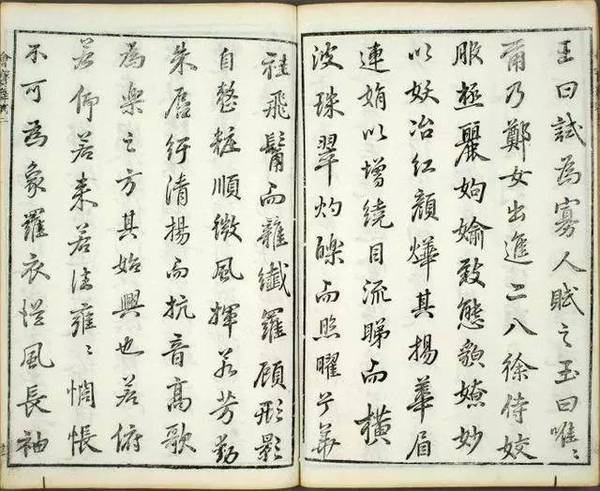 王曰試為寡人賦之玉曰唯〻
爾乃鄭女出進二八徐侍姣
服極麗姁媮致態貌嫽妙
以妖冶紅顏燁其揚華眉
連娟以增繞目流睇而橫
波珠翠灼礫而照曜兮華
袿飛髾而雜纖羅顧形影
自整粧順微風揮若芳動
朱唇紆清揚而抗音高歌
為樂之方其始興也若俯
若仰若來若往雍〻惆悵
不可為象羅衣從風長袖